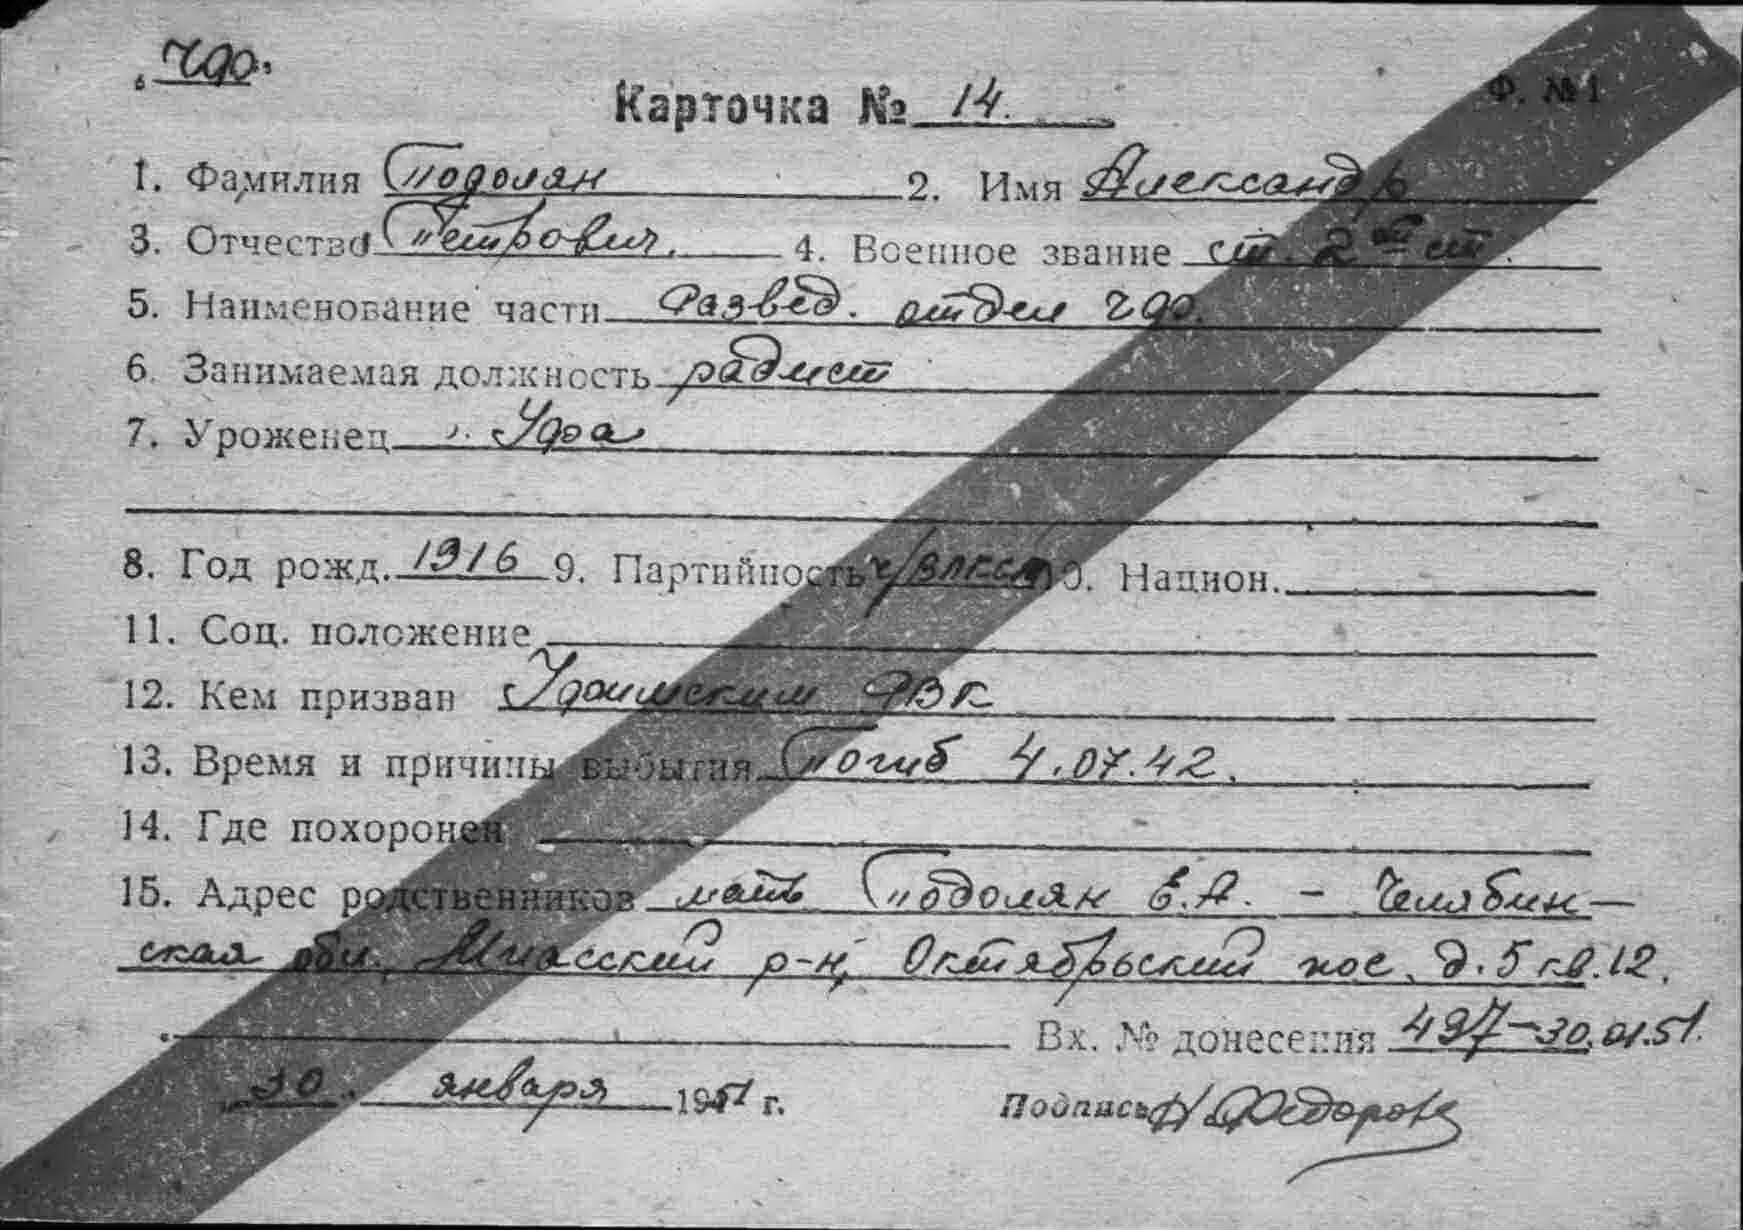 ЧФ.
Ф. №1
Карточка № 14.
1. Фамилия Подолян 2. Имя Александр
3. Отчество Петрович. 4. Военное звание ст. 2ой ст.
5. Наименование части Развед. отдел ЧФ.
6. Занимаемая должность радист
7. Уроженец г. Уфа
8. Год рожд. 1916 9. Партийность ч/ВЛКСМ 10. Национ.
11. Соц. положение
12. Кем призван Уфимским РВК
13. Время и причины выбытия Погиб 4.07.42.
14. Где похоронен
15. Адрес родственников мать Подолян Е.А. - Челябин-
ская обл., Миасский р-н, Октябрьский пос. д. 5 кв. 12.
Вх. № донесения 497-30.01.51.
30. января 1951 г. Подпись Н Федорова